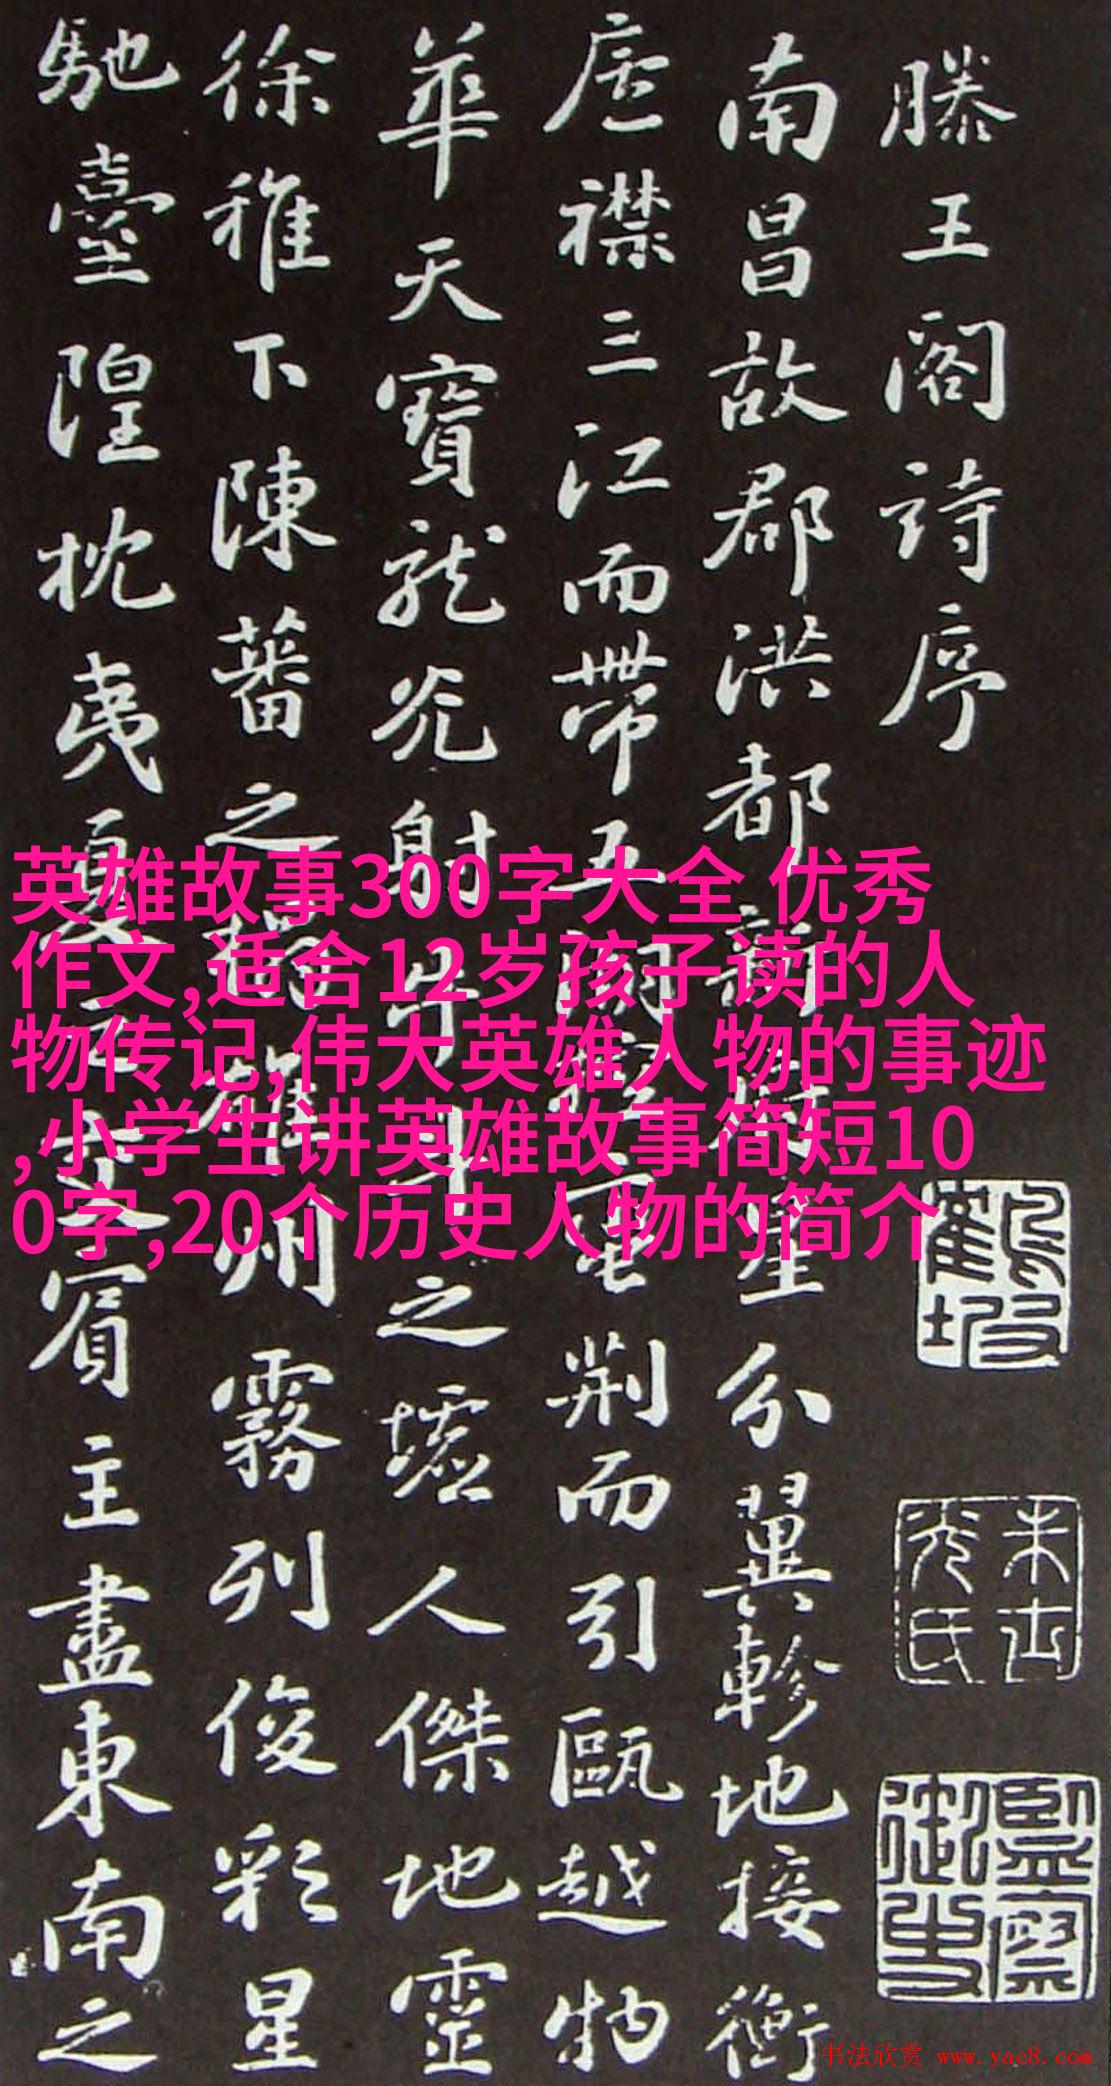 滕王阁詩序
南昌故郡洪都新府星分翼軫地接衡
廬襟三江而帶五湖控蛮荆而引甌越物
華天寶龙光射牛斗之墟人傑地靈
徐稚下陳蕃之榻雄州霧列俊彩星
馳臺隍枕夷夏之交賓主盡東南之
英雄故事300字大全 优秀
作文,适合12岁孩子读的人
物传记,伟大英雄人物的事迹
,小学生讲英雄故事简短10
0字,20个历史人物的简介
书法欣赏 www.yac8.com